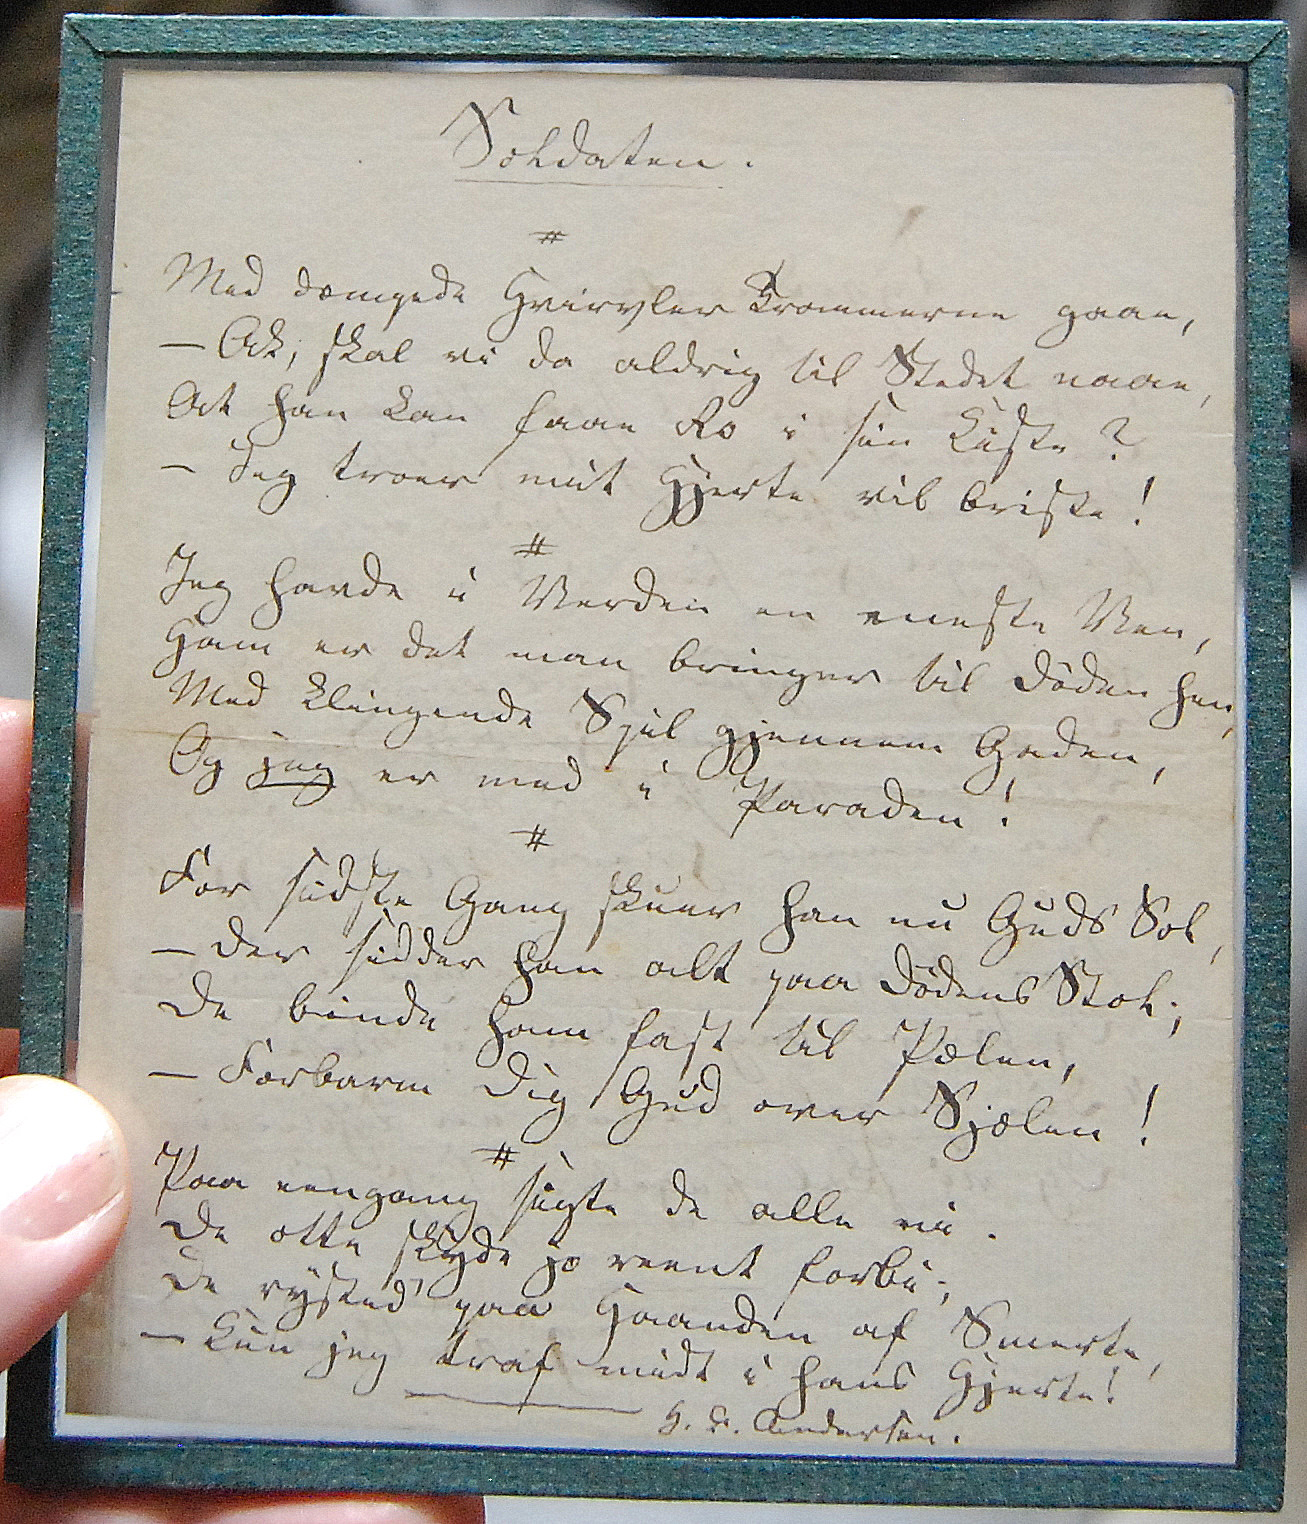 Soldaten.
#
Med dæmpede Hvirvler Trommerne gaae,
— Ak, skal vi da aldrig til Stedet naae,
At han kan faae Ro i sin Kiste?
— Jeg troer mit Hjerte vil briste!
#
Jeg havde i Verden en eneste Ven,
Ham er det man bringer til Døden hen,
Med klingende Spil gjennem Gaden,
Og jeg er med i Paraden!
#
For sidste Gang skuer han nu Guds Sol,
— Der sidder han alt paa Dødens Stol;
De binde ham fast til Pælen,
— Forbarm Dig Gud over Sjælen!
#
Paa eengang sigte de alle ni.
De otte skyde jo reent forbi;
De rysted' paa Haanden af Smerte,
— Kun jeg traf midt i hans Hjerte!
H. C. Andersen.